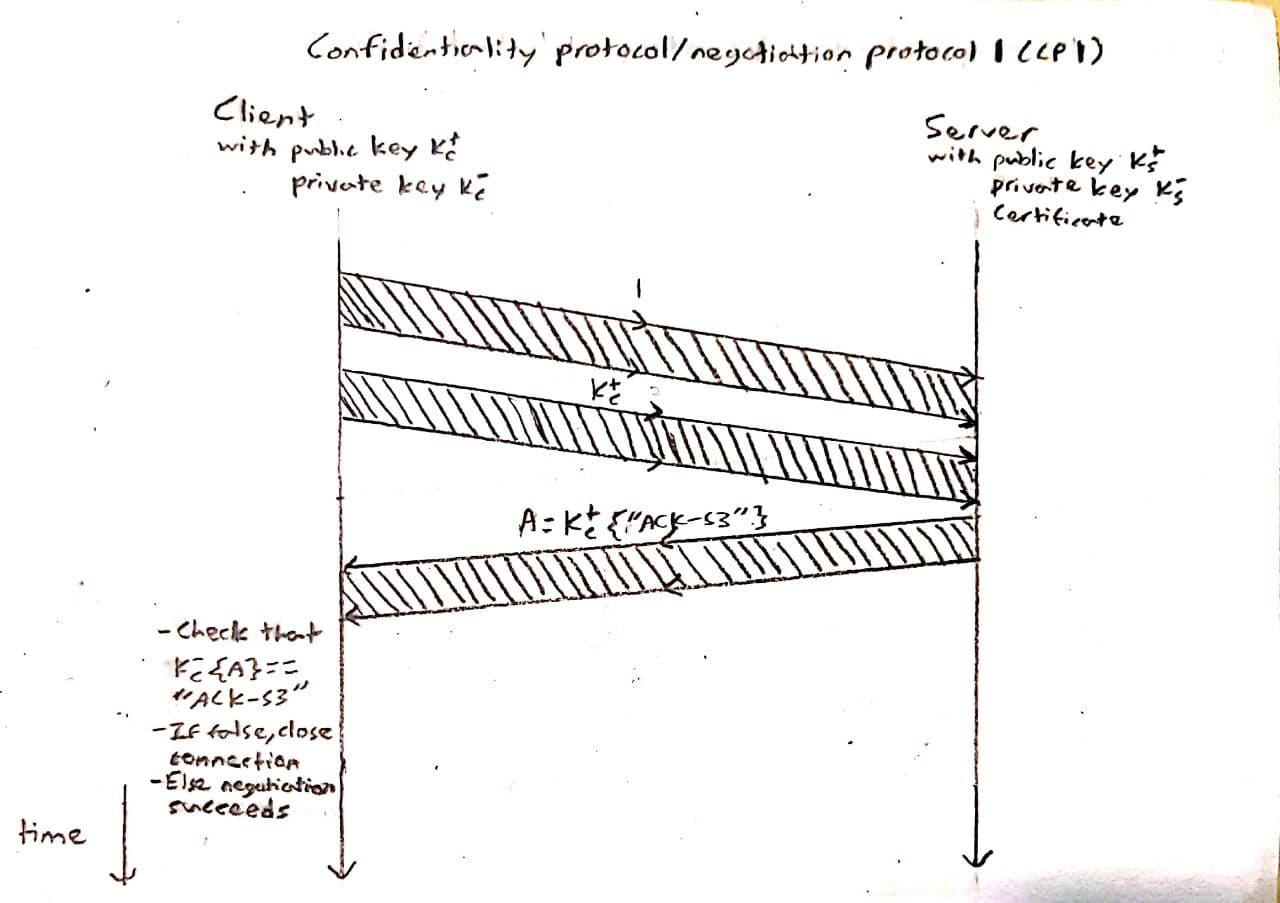 Confidentiality protocol/negotiation protocol 1 (CP1)
Client
with public key K꜀⁺
private key K꜀⁻
Server
with public key Kₛ⁺
private key Kₛ⁻
Certificate
1
K꜀⁺
A = K꜀⁺{"ACK-S3"}
- Check that
K꜀⁻{A}==
"ACK-S3"
- If false, close
connection
- Else negotiation
succeeds
time